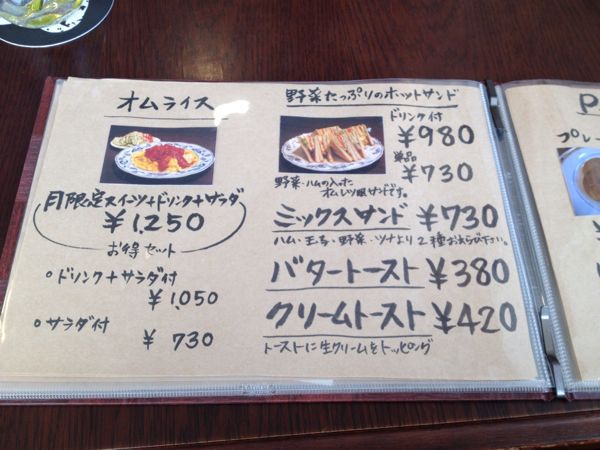 オムライス
月限定スイーツ+ドリンク+サラダ
¥1,250
お得セット
。ドリンク+サラダ付
¥1,050
。サラダ付
¥ 730
野菜たっぷりのホットサンド
ドリンク付
¥980
単品
¥730
野菜・ハムの入った
オムレツ風サンドです。
ミックスサンド ¥730
ハム・玉子・野菜・ツナより2種お選び下さい。
バタートースト ¥380
クリームトースト ¥420
トーストに生クリームをトッピング
P
プレー